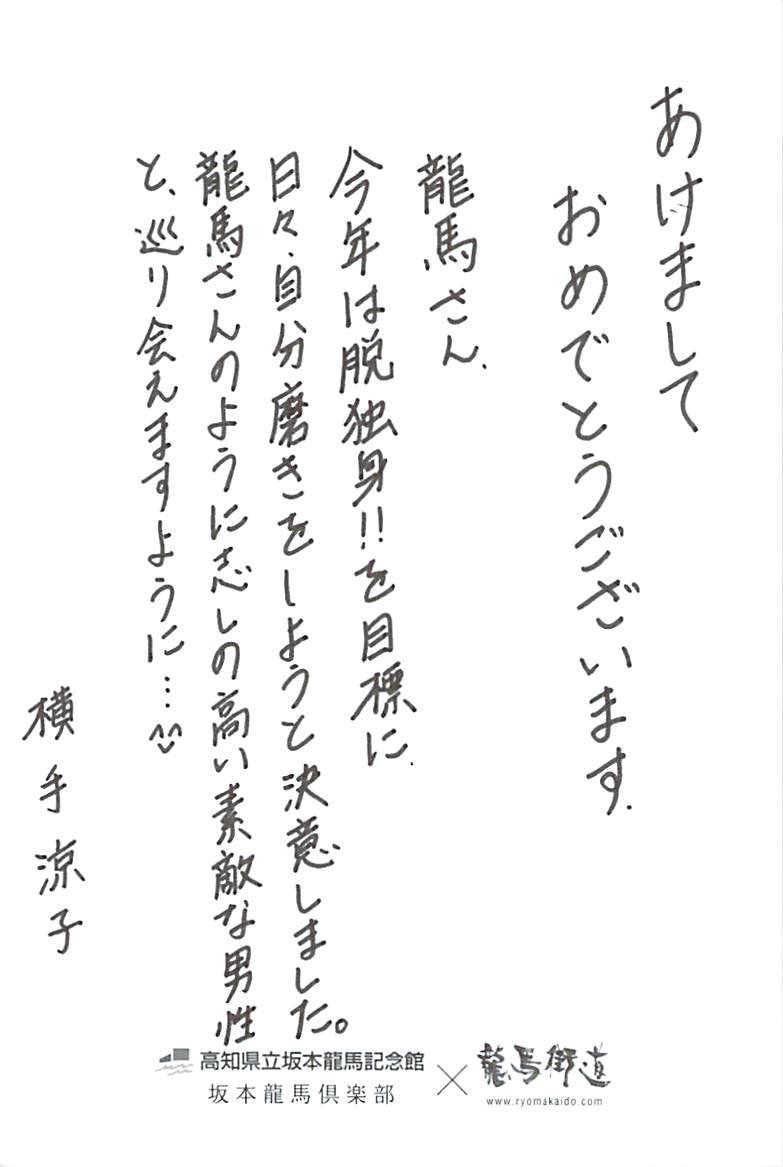 あけまして
おめでとうございます.
龍馬さん.
今年は脱独身!!を目標に.
日々、自分磨きをしようと決意しました。
龍馬さんのように志しの高い素敵な男性
と、巡り会えますように…^^
横手涼子
高知県立坂本龍馬記念館
坂本龍馬倶楽部
×
龍馬街道
www.ryomakaido.com